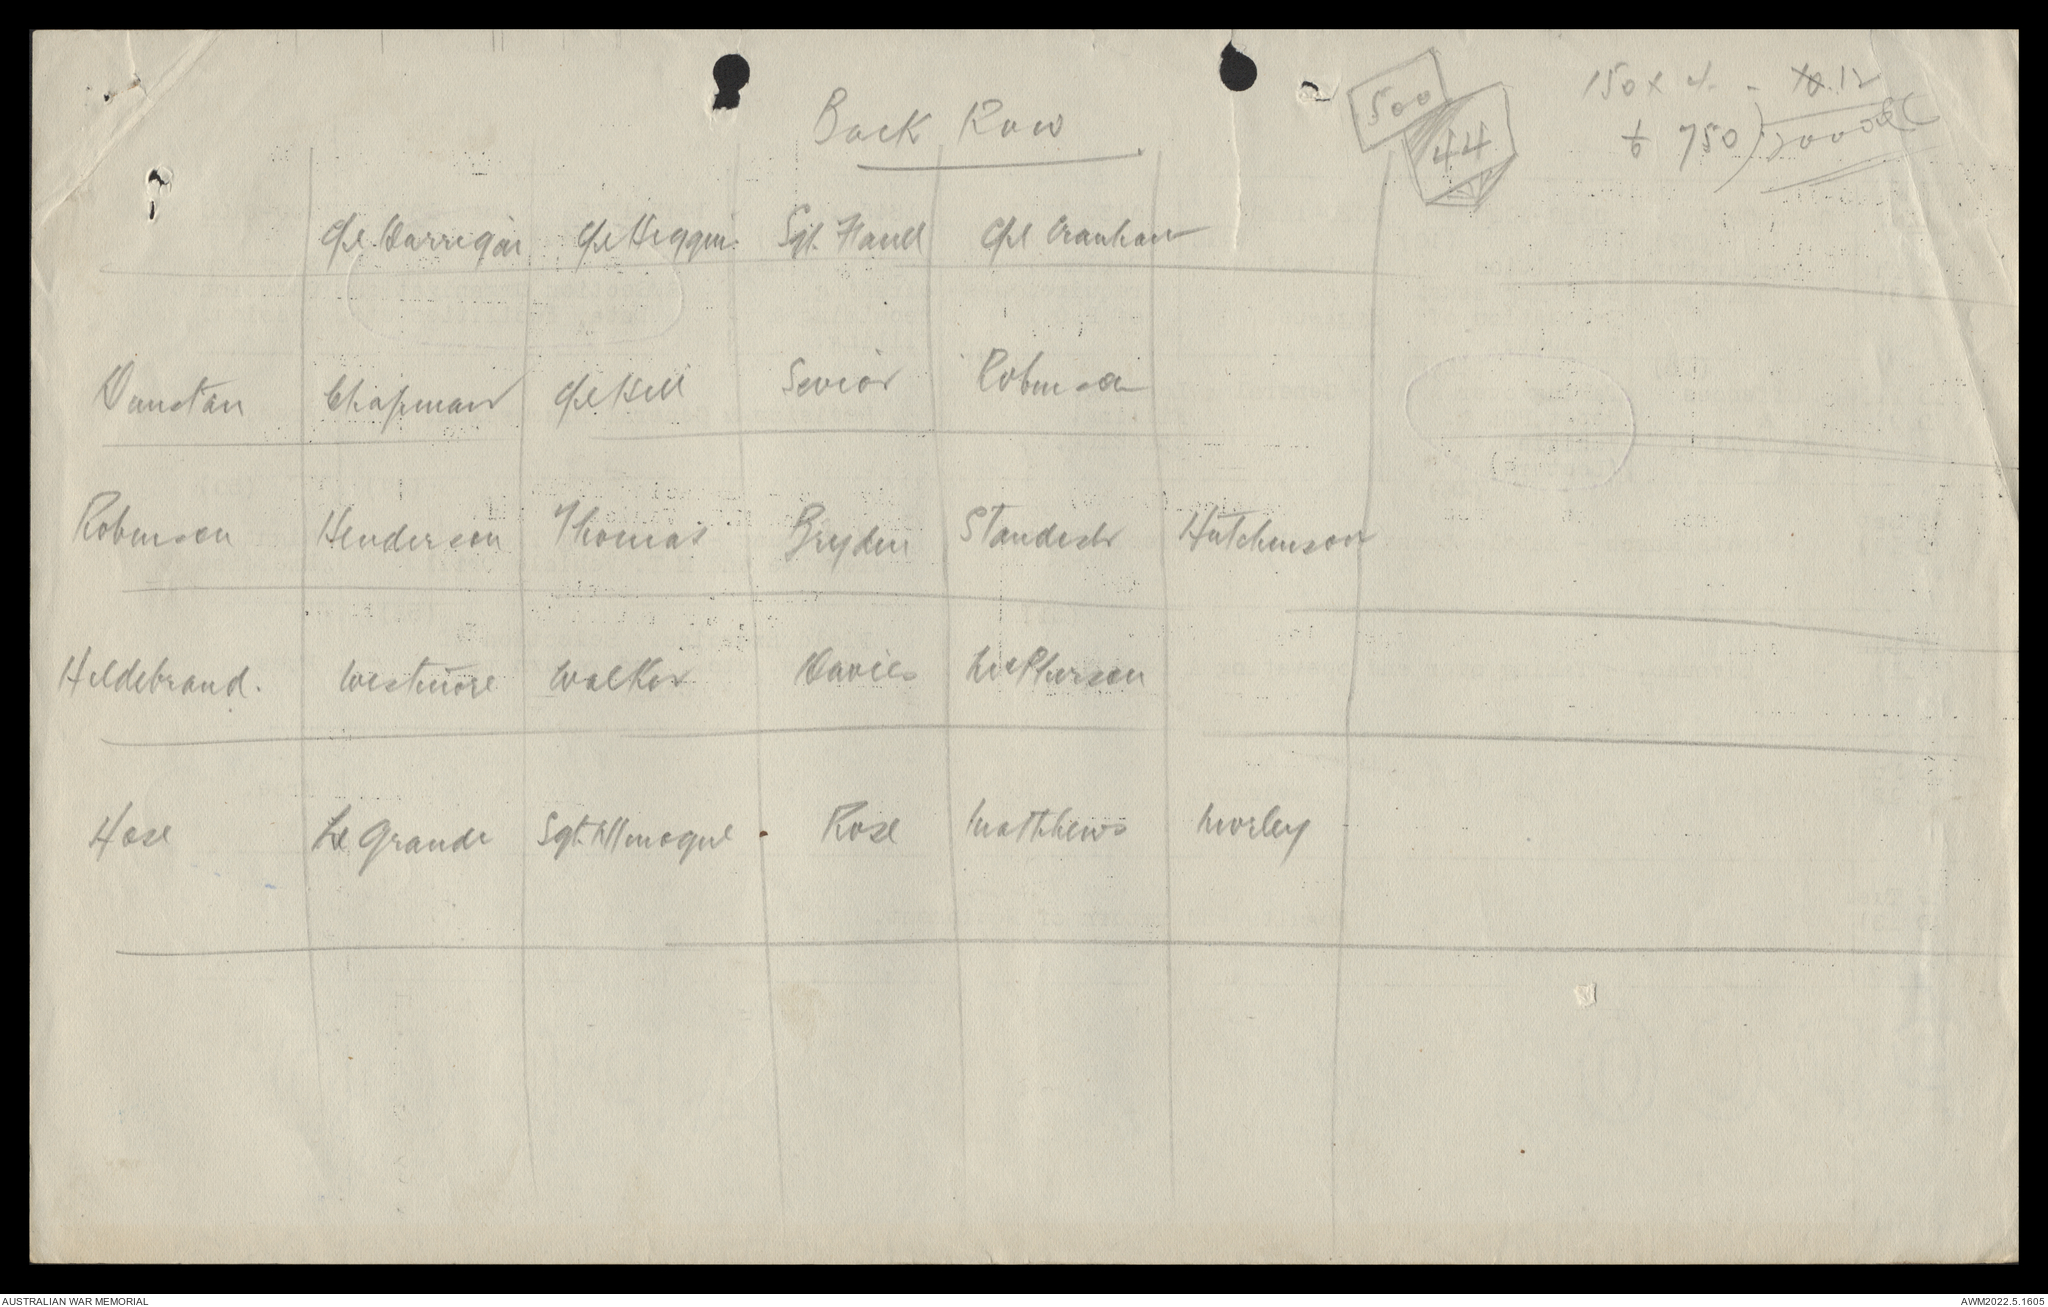 Back Row
500
44
150 x 4. - 10.12
6 750) 20000
Cpl Harrigan Cpl Higgins Sgt. Cpl Cranham
Dunstan Chapman Cpl Hill Sevior Robinson
Robinson Henderson Thomas Bryden Standish Hutchinson
Hildebrand. Westmore Walker Davies McPherson
Hose Le Grande Sgt. Rose Matthews Morley
AUSTRALIAN WAR MEMORIAL
AWM2022.5.1605